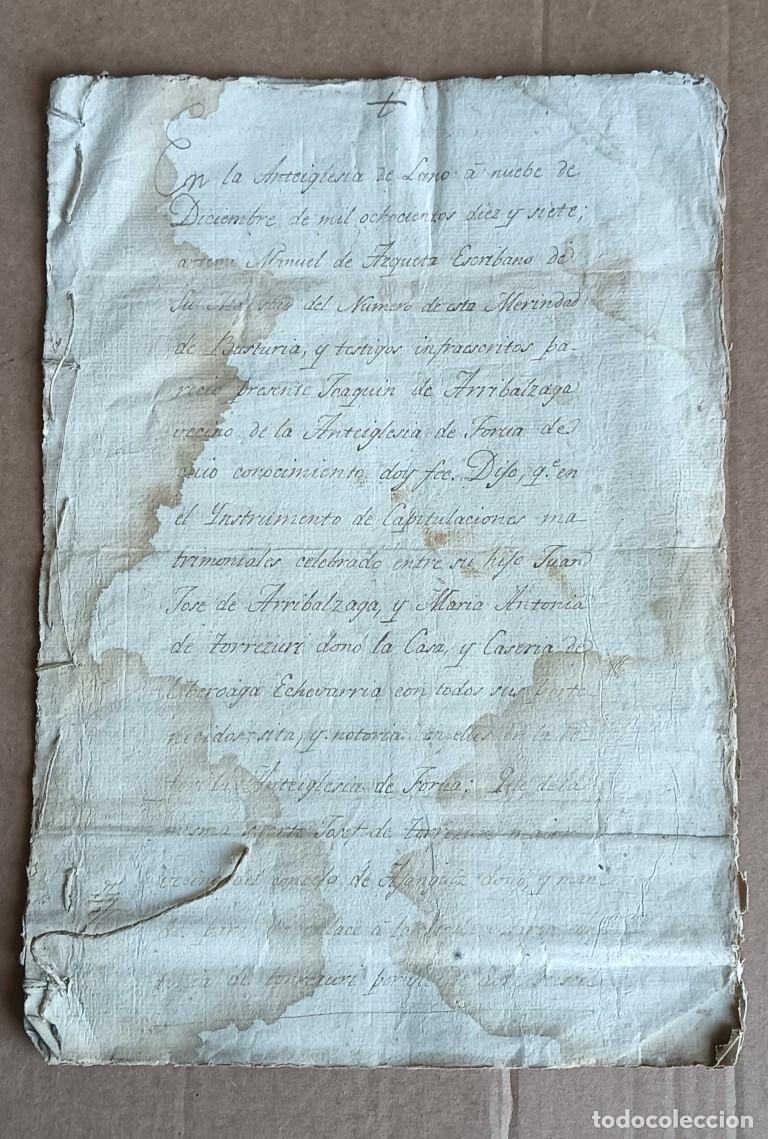 +
En la Anteiglesia de Lano à nuebe de
Diciembre de mil ochocientos diez y siete;
ante mi Manuel de Azqueta Escribano de
Su Magestad del Numero de esta Merindad
de Busturia, y testigos infraescritos pa-
recio presente Joaquin de Arribalzaga
vecino de la Anteiglesia de Forua de
cuio conocimiento doy fee. Dijo, q.e en
el Ynstrumento de Capitulaciones ma-
trimoniales celebrado entre su hijo Juan
Jose de Arribalzaga, y Maria Antonia
de Torrezuri donó la Casa, y Caseria de
Uberoaga Echevarria con todos sus perte-
necidos sita, y notoria en la
Anteiglesia de Forua; Que de la
mesma suerte Josef de Torrezuri maior
vecino del concejo de Ajanguiz donó, y man
enlace à la
de Torrezuri por
todocoleccion